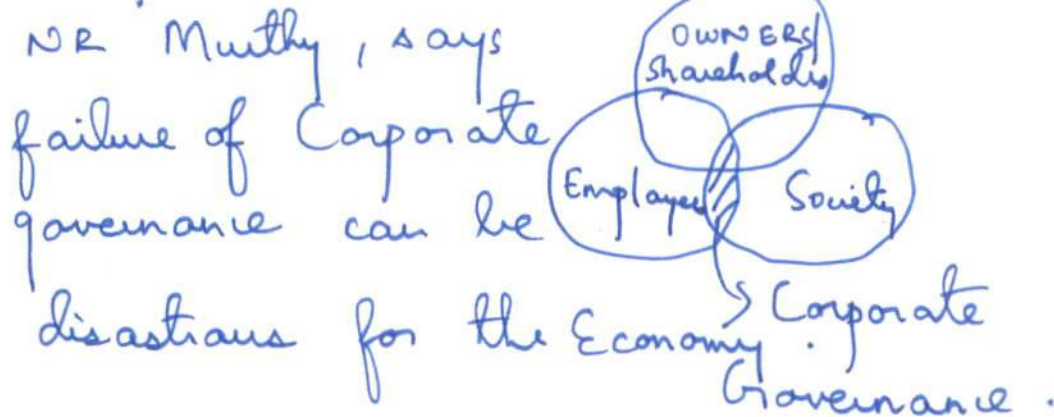 NR Murthy, says
failure of Corporate
governance can be
disastrous for the Economy.
OWNERS/
Shareholders
Employees
Society
Corporate
Governance.